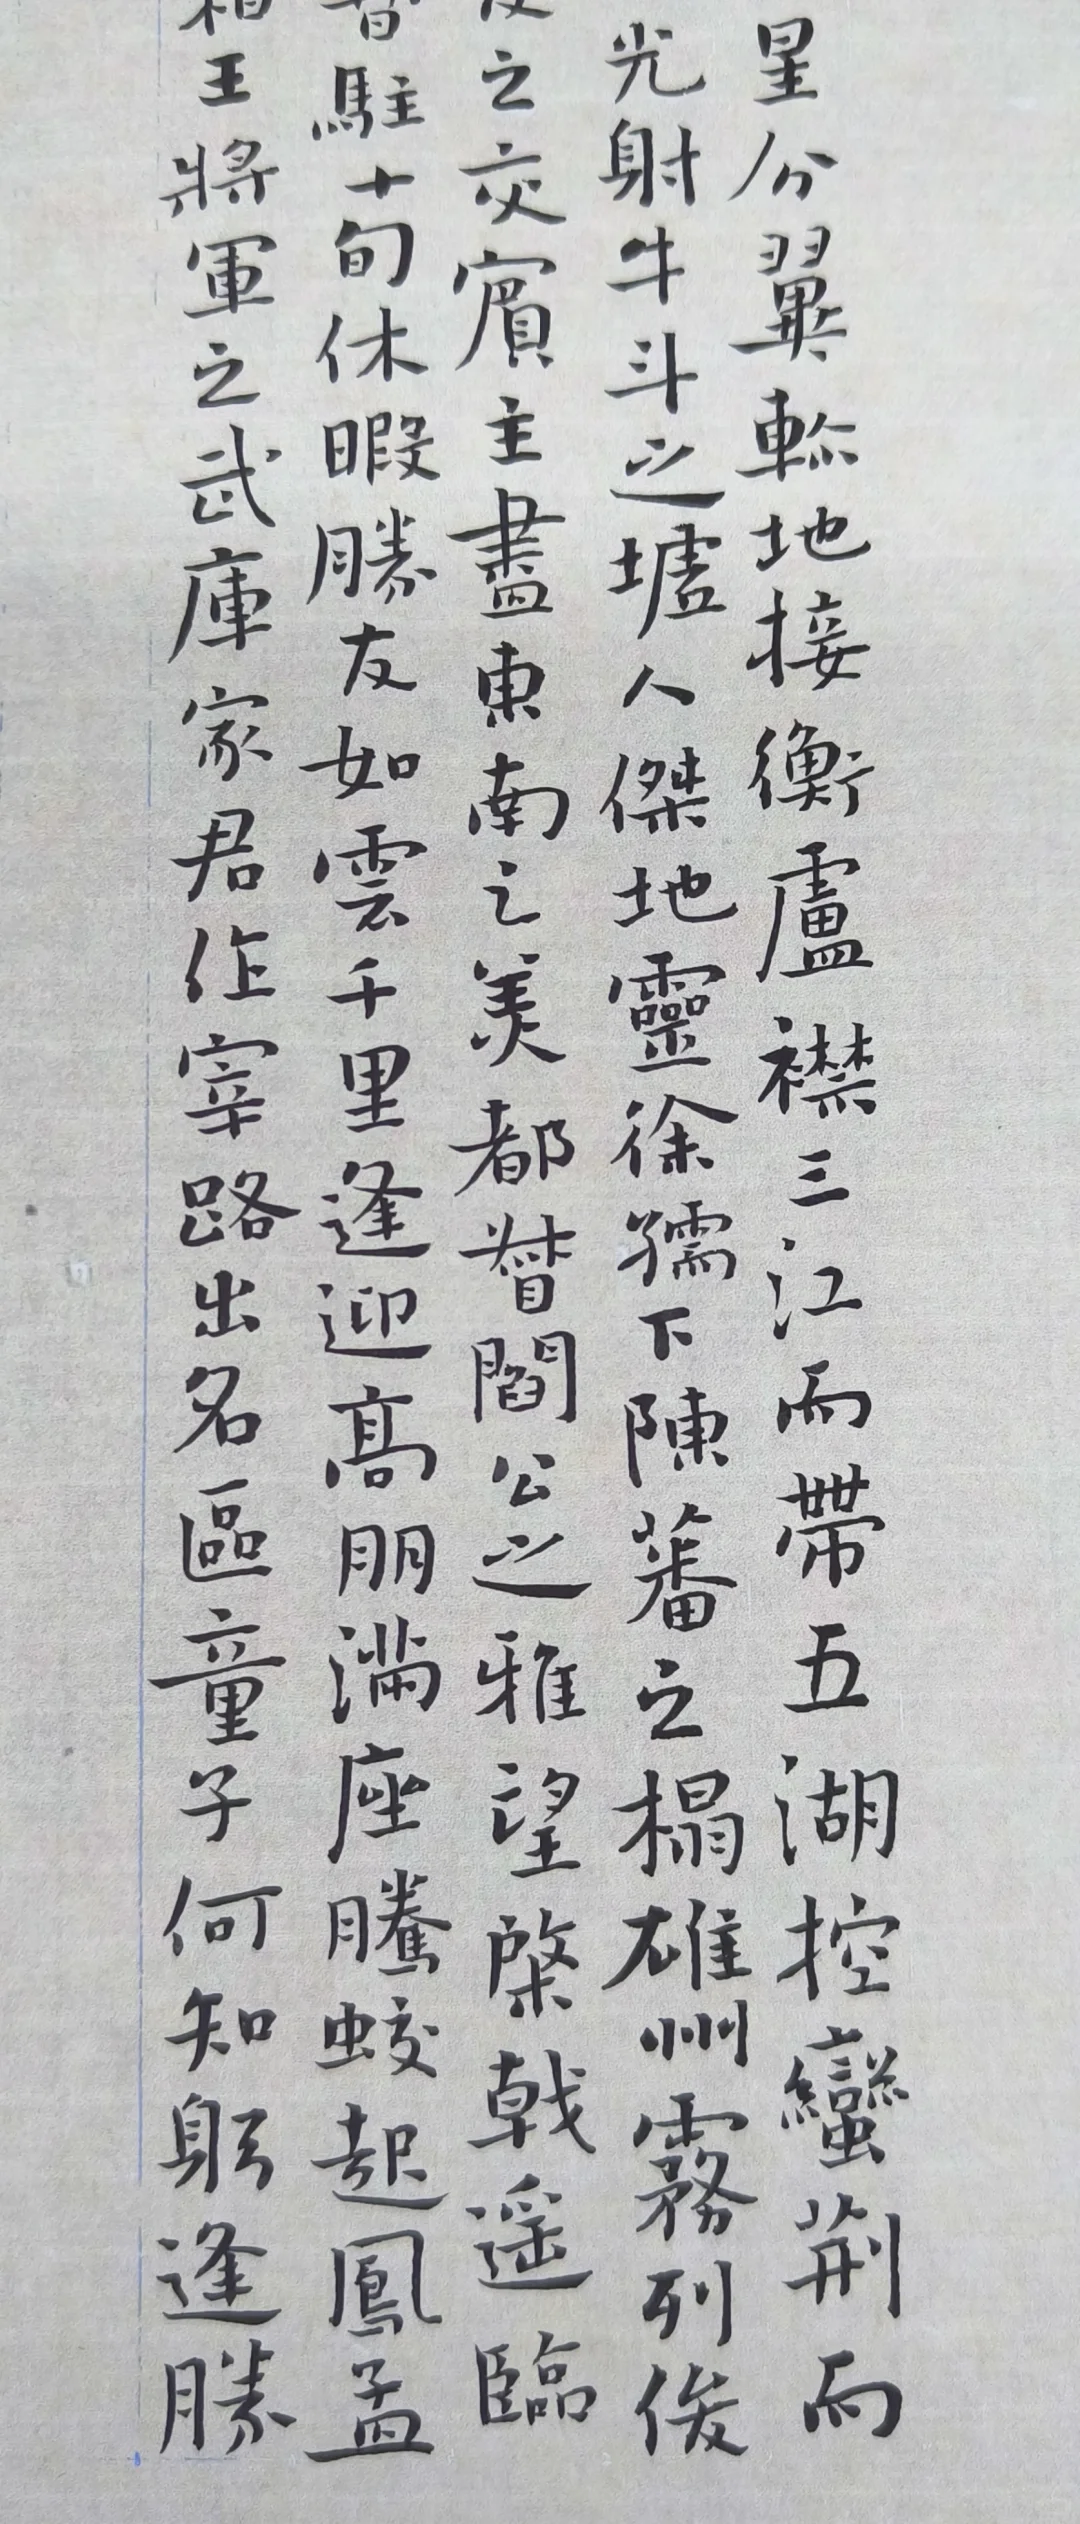 星分翼軫地接衡廬襟三江而帶五湖控蠻荊而
光射牛斗之墟人傑地靈徐孺下陳蕃之榻雄州霧列俊
之交賓主盡東南之美都督閻公之雅望棨戟遥臨
駐十旬休暇勝友如雲千里逢迎高朋滿座騰蛟起鳳孟
王將軍之武庫家君作宰路出名區童子何知躬逢勝